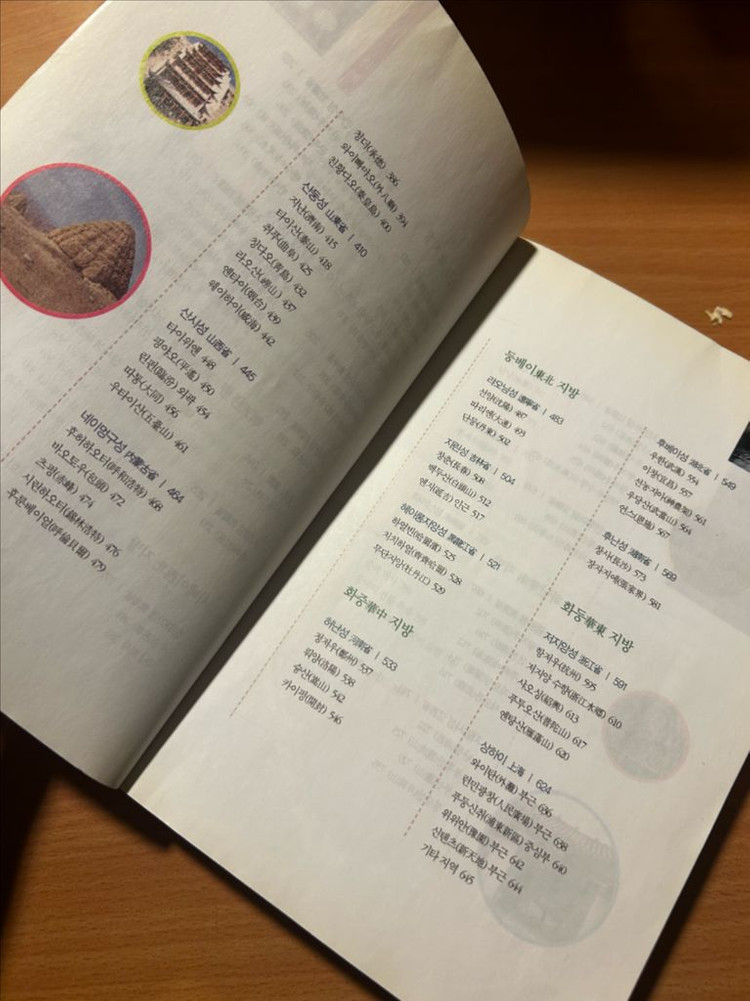 청더(承德) 386
와이빠마오(外八廟) 394
친황다오(秦皇島) 400
산둥성 山東省 | 410
지난(濟南) 415
타이산(泰山) 418
취푸(曲阜) 425
칭다오(靑島) 432
라오산(嶗山) 437
옌타이(烟台) 439
웨이하이(威海) 442
산시성 山西省 | 445
타이위엔 448
핑야오(平遙) 450
린펀(臨汾) 외곽 454
따퉁(大同) 456
우타이산(五臺山) 461
네이멍구성 內蒙古省 | 464
후허하오터(呼和浩特) 468
바오토우(包頭) 472
츠펑(赤峰) 474
시린하오터(錫林浩特) 476
후룬베이얼(呼倫貝爾) 479
둥베이東北 지방
랴오닝성 遼寧省 | 483
선양(沈陽) 487
따리엔(大連) 493
단둥(丹東) 502
지린성 吉林省 | 504
창춘(長春) 508
백두산(白頭山) 512
옌지(延吉) 인근 517
헤이룽지앙성 黑龍江省 | 521
하얼빈(哈爾濱) 525
치치하얼(齊齊哈爾) 528
무단지앙(牡丹江) 529
화중華中 지방
허난성 河南省 | 533
정저우(鄭州) 537
뤄양(洛陽) 538
숭산(嵩山) 542
카이펑(開封) 546
후베이성 湖北省 | 549
우한(武漢) 554
이창(宜昌) 557
선농지아(神農架) 561
우당산(武當山) 564
언스(恩施) 567
후난성 湖南省 | 569
창사(長沙) 573
장자지에(張家界) 581
화동華東 지방
저지앙성 浙江省 | 591
항저우(杭州) 595
저지앙 수향(浙江水鄕) 610
샤오싱(紹興) 613
푸투오산(普陀山) 617
옌땅산(雁蕩山) 620
상하이 上海 | 624
와이탄(外灘) 부근 636
런민광창(人民廣場) 부근 638
푸둥신취(浦東新區) 중심부 640
위위안(豫園) 부근 642
신톈츠(新天地) 부근 644
기타 지역 645